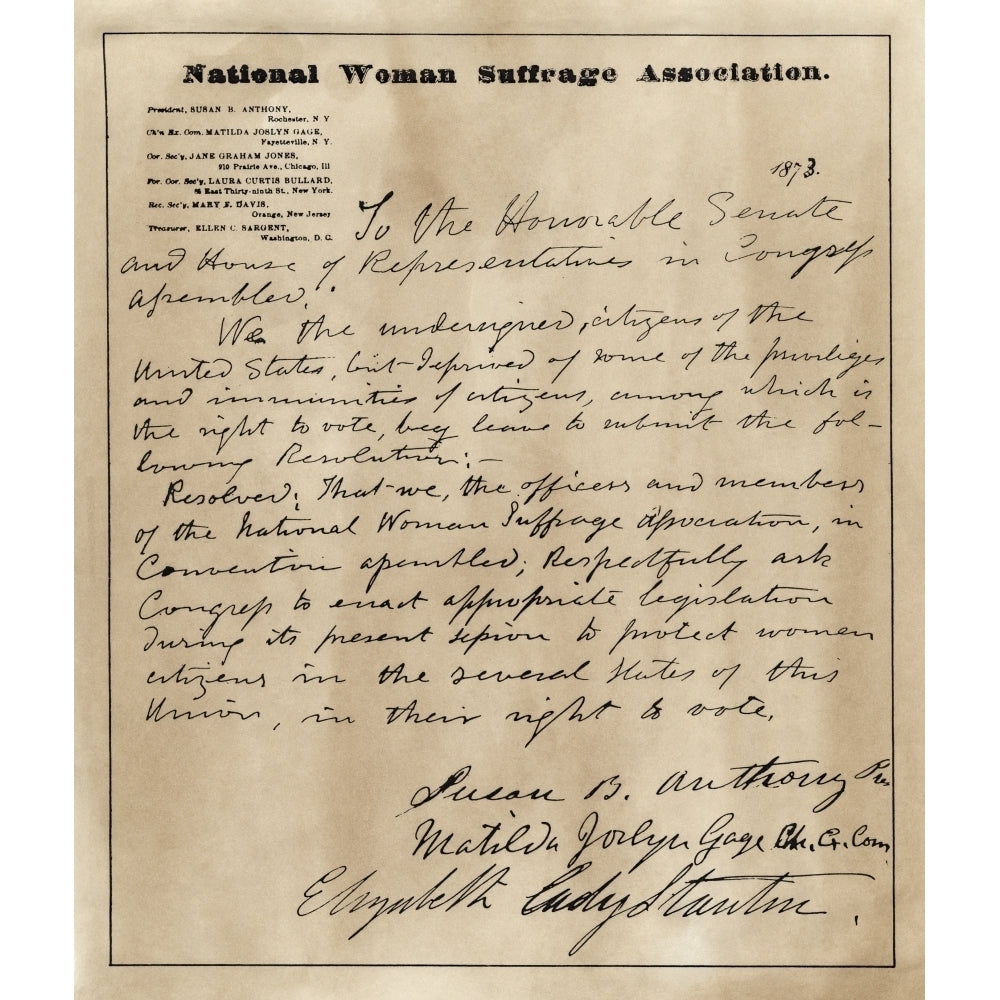 National Woman Suffrage Association.
President, SUSAN B. ANTHONY,
Rochester, N Y
Ch'n Ex. Com. MATILDA JOSLYN GAGE,
Fayetteville, N. Y.
Cor. Sec'y, JANE GRAHAM JONES,
910 Prairie Ave., Chicago, Ill
For. Cor. Sec'y, LAURA CURTIS BULLARD,
East Thirty-ninth St., New York.
Rec. Sec'y, MARY F. DAVIS,
Orange, New Jersey
Treasurer, ELLEN C. SARGENT,
Washington, D. C.
1873.
To the Honorable Senate
and House of Representatives in Congress
assembled.
We the undersigned, citizens of the
United States, but deprived of some of the privileges
and immunities of citizens, among which is
the right to vote, beg leave to submit the fol-
lowing Resolution:-
Resolved; That we, the officers and members
of the National Woman Suffrage Association, in
Convention assembled; Respectfully ask
Congress to enact appropriate legislation
during its present session to protect women
citizens in the several States of this
Union, in their right to vote.
Susan B. Anthony Pres
Matilda Joslyn Gage Ch. Ex. Com
Elizabeth Cady Stanton.